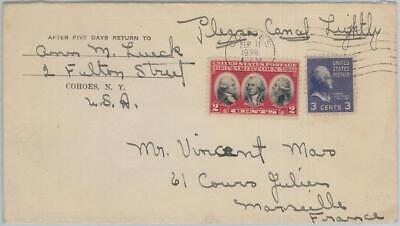 AFTER FIVE DAYS RETURN TO
Ann M. Lueck
2 Fulton Street
COHOES, N.Y.
U.S.A.
Please Cancel Lightly
SEP 11
1938
UNITED STATES POSTAGE
2 CENTS 2
3 CENTS 3
Mr. Vincent Maro
61 Cours Julien
Marseille
France